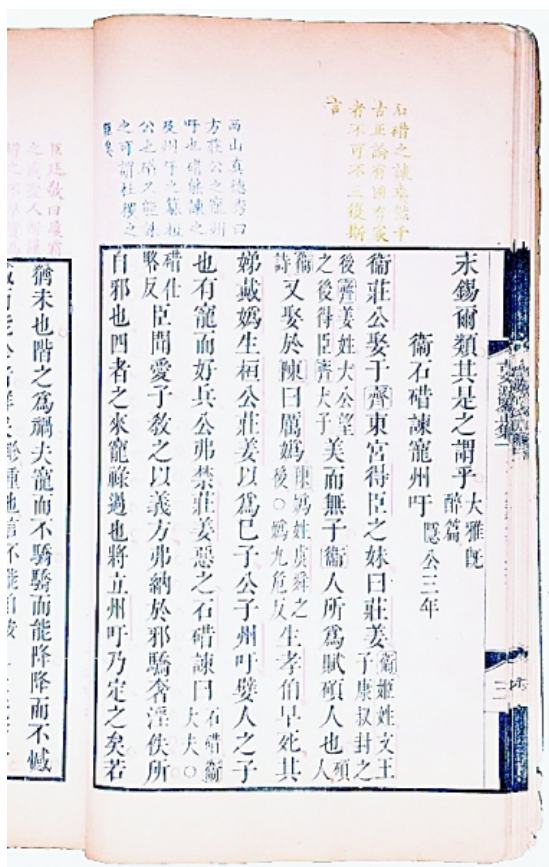 石碏之諫
古正論有國有家
者不可不三復斯
言
西山真德秀曰
方莊公之寵州
吁也碏能諫之
及州吁之簒桓
公也碏又能誅
之可謂社稷之
臣矣
末錫爾類其是之謂乎大雅既醉篇
衞石碏諫寵州吁隱公三年
衞莊公娶于齊東宮得臣之妹曰莊姜衞姬姓文王子康叔封之
後齊姜姓大公望之後得臣齊大子美而無子衞人所爲賦碩人也碩人
衞詩又娶於陳曰厲嬀陳嬀姓虞舜之後○嬀九危反生孝伯早死其
娣戴嬀生桓公莊姜以爲已子公子州吁嬖人之子
也有寵而好兵公弗禁莊姜惡之石碏諫曰石碏衞大夫○
碏七略反臣聞愛子教之以義方弗納於邪驕奢淫佚所
自邪也四者之來寵祿過也將立州吁乃定之矣若
猶未也階之爲禍夫寵而不驕驕而能降降而不憾